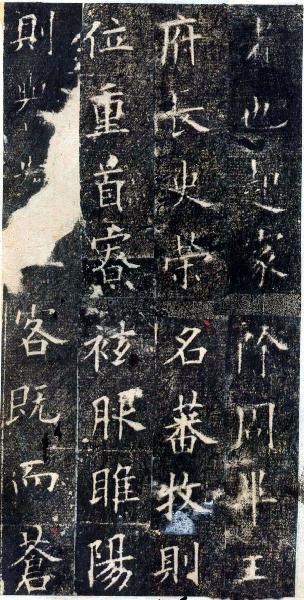 者也起家除周平王
府長史榮名蕃牧則
位重首寮袨服睢陽
則客既而蒼